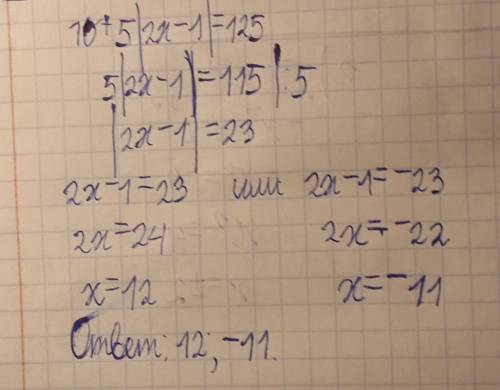 10+5|2x-1|=125
5|2x-1|=115|:5
|2x-1|=23
2x-1=23 или 2x-1=-23
2x=24 2x=-22
x=12 x=-11
Ответ: 12; -11.